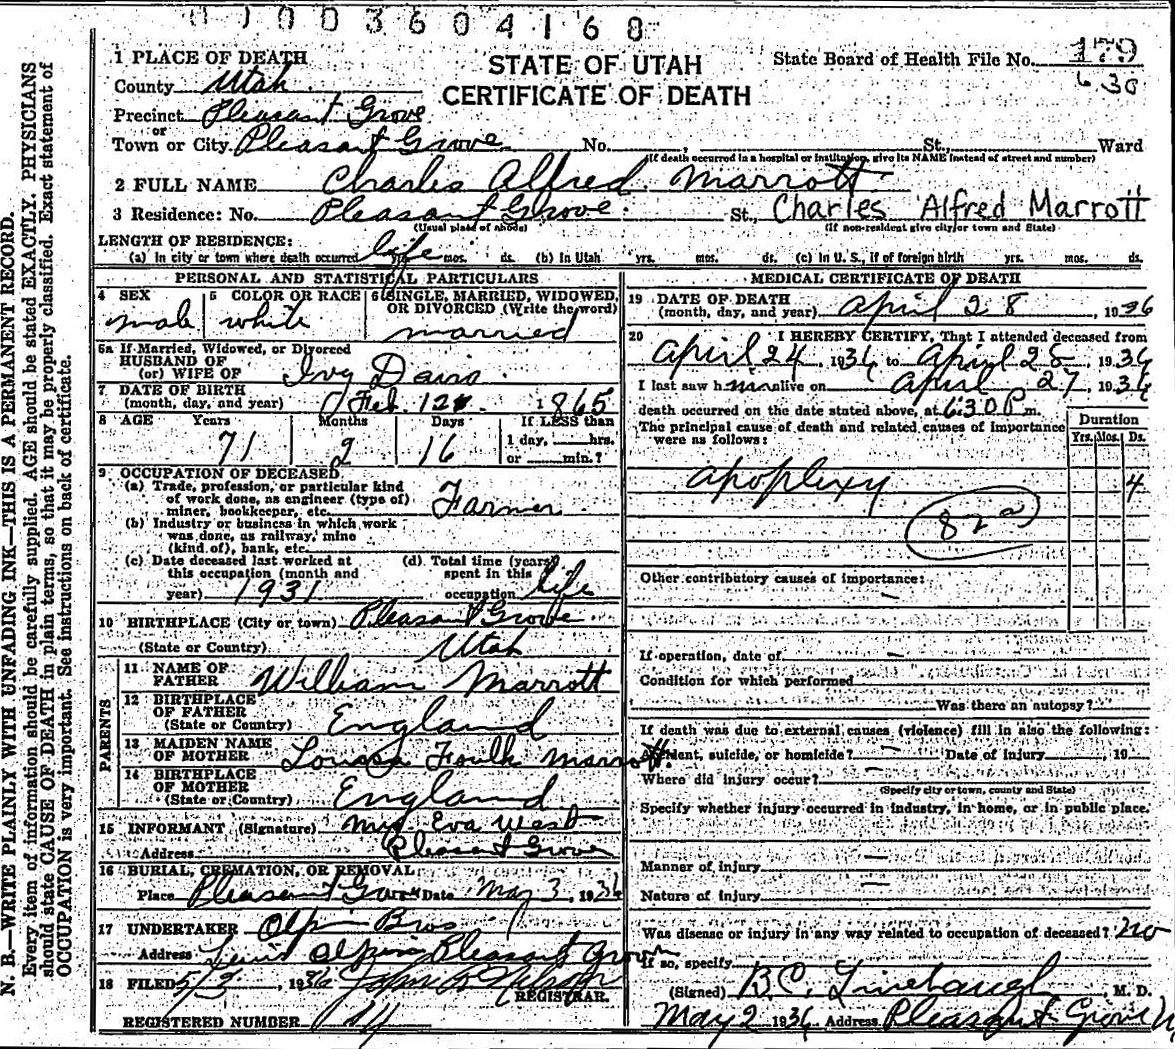 0003604168
N. B.—WRITE PLAINLY WITH UNFADING INK—THIS IS A PERMANENT RECORD.
Every item of information should be carefully supplied. AGE should be stated EXACTLY. PHYSICIANS
should state CAUSE OF DEATH in plain terms, so that it may be properly classified. Exact statement of
OCCUPATION is very important. See instructions on back of certificate.
STATE OF UTAH
CERTIFICATE OF DEATH
State Board of Health File No. 179
630
1 PLACE OF DEATH
County Utah
Precinct Pleasant Grove
or
Town or City Pleasant Grove No. , St., Ward
(If death occurred in a hospital or institution, give its NAME instead of street and number)
2 FULL NAME Charles Alfred Marrott
3 Residence: No. Pleasant Grove St., Charles Alfred Marrott
(Usual place of abode) (If non-resident give city or town and State)
LENGTH OF RESIDENCE:
(a) in city or town where death occurred life yrs. mos. ds. (b) In Utah yrs. mos. ds. (c) in U. S., if of foreign birth yrs. mos. ds.
PERSONAL AND STATISTICAL PARTICULARS
4 SEX male
5 COLOR OR RACE white
6 SINGLE, MARRIED, WIDOWED, OR DIVORCED (Write the word) married
5a If Married, Widowed, or Divorced
HUSBAND OF
(or) WIFE OF Ivy Davis
7 DATE OF BIRTH
(month, day, and year) Feb. 12 1865
8 AGE Years 71 Months 2 Days 16 If LESS than
1 day, hrs.
or min.?
9 OCCUPATION OF DECEASED
(a) Trade, profession, or particular kind
of work done, as engineer (type of)
miner, bookkeeper, etc. Farmer
(b) Industry or business in which work
was done, as railway, mine
(kind of), bank, etc.
(c) Date deceased last worked at
this occupation (month and
year) 1931
(d) Total time (years)
spent in this
occupation life
10 BIRTHPLACE (City or town) Pleasant Grove
(State or Country) Utah
PARENTS
11 NAME OF
FATHER William Marrott
12 BIRTHPLACE
OF FATHER
(State or Country) England
13 MAIDEN NAME
OF MOTHER Louisa Foulk Marrott.
14 BIRTHPLACE
OF MOTHER
(State or Country) England
15 INFORMANT (Signature) Mrs Eva West
Address Pleasant Grove
16 BURIAL, CREMATION, OR REMOVAL
Place Pleasant Grove Date May 3, 1936
17 UNDERTAKER Olpin Bros
Address Olpin Pleasant Grove
18 FILED 5/3, 1936
REGISTRAR.
REGISTERED NUMBER 14
MEDICAL CERTIFICATE OF DEATH
19 DATE OF DEATH
(month, day, and year) April 28, 1936
20 I HEREBY CERTIFY, That I attended deceased from
April 24 1936 to April 28 1936
I last saw him alive on April 27 1936
death occurred on the date stated above, at 6:30 P m.
The principal cause of death and related causes of importance
were as follows:
Duration
Yrs. Mos. Ds.
apoplexy 4
82a
Other contributory causes of importance:
If operation, date of
Condition for which performed
Was there an autopsy?
If death was due to external causes (violence) fill in also the following:
Accident, suicide, or homicide? Date of injury , 19
Where did injury occur?
(Specify city or town, county and State)
Specify whether injury occurred in industry, in home, or in public place.
Manner of injury
Nature of injury
Was disease or injury in any way related to occupation of deceased? no
If so, specify
(Signed) B.C. Linebaugh, M. D.
May 2 1936 Address Pleasant Grove U